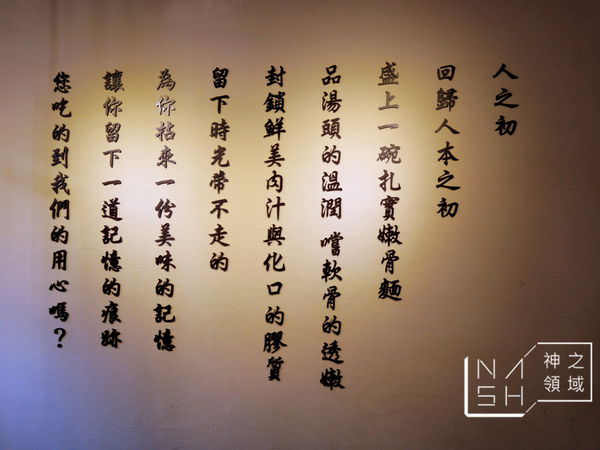 人之初
回歸人本之初
盛上一碗扎實嫩骨麵
品湯頭的溫潤 嚐軟骨的透嫩
封鎖鮮美肉汁與化口的膠質
留下時光帶不走的
為你拈來一份美味的記憶
讓你留下一道記憶的痕跡
您吃的到我們的用心嗎？
NASH
神之
領域